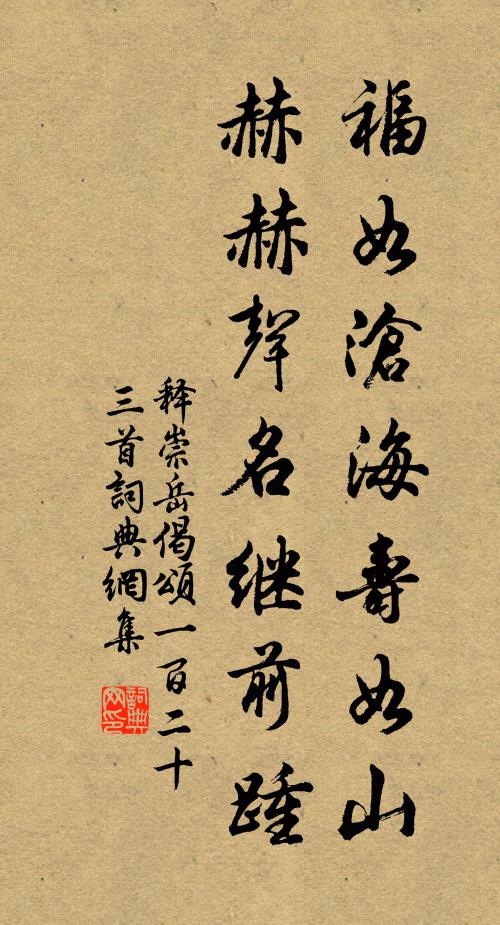 福如滄海壽如山
赫赫聲名继前踵
释崇岳偈頌一百二十
三首詞典網集
詞典
网印